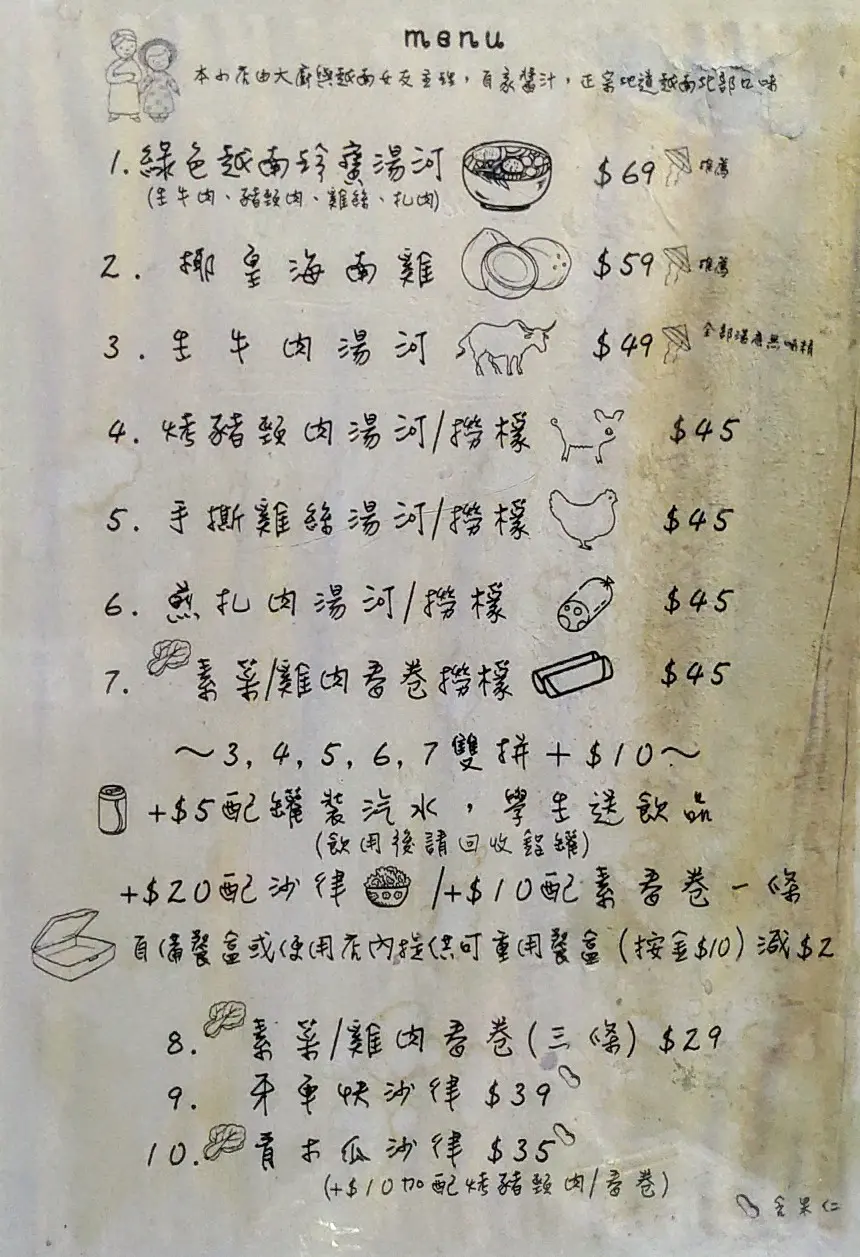 menu
本小店由大廚與越南女友主理，自家醬汁，正宗地道越南北部口味
1. 綠色越南珍寶湯河 $69 推薦
(生牛肉、豬頸肉、雞絲、扎肉)
2. 椰皇海南雞 $59 推薦
3. 生牛肉湯河 $49 全部湯底無味精
4. 烤豬頸肉湯河/撈檬 $45
5. 手撕雞絲湯河/撈檬 $45
6. 煎扎肉湯河/撈檬 $45
7. 素菜/雞肉春卷撈檬 $45
～3, 4, 5, 6, 7雙拼+$10～
+$5配罐裝汽水，學生送飲品
(飲用後請回收鋁罐)
+$20配沙律 /+$10配素春卷一條
自備餐盒或使用店內提供可重用餐盒(按金$10)減$2
8. 素菜/雞肉春卷(三條) $29
9. 牙車快沙律 $39
10. 青木瓜沙律 $35
(+$10加配烤豬頸肉/春卷)
含果仁